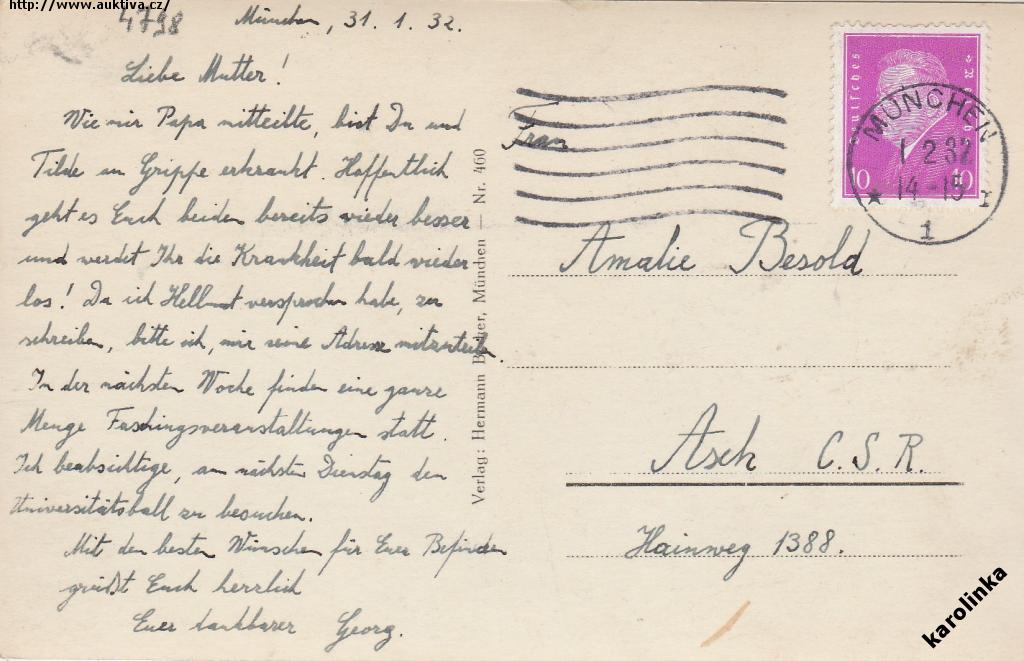 http://www.auktiva.cz/
4798
München, 31. 1. 32.
Liebe Mutter!
Wie mir Papa mitteilte, bist Du und
Tilde an Grippe erkrankt. Hoffentlich
geht es Euch beiden bereits wieder besser
und werdet Ihr die Krankheit bald wieder
los! Da ich Hellmut versprochen habe, zu
schreiben, bitte ich, mir seine Adresse mitzuteilen.
In der nächsten Woche finden eine ganze
Menge Faschingsveranstaltungen statt.
Ich beabsichtige, am nächsten Dienstag den
Universitätsball zu besuchen.
Mit den besten Wünschen für Euer Befinden
grüßt Euch herzlich
Euer dankbarer Georg.
Verlag: Hermann München — Nr. 460
10 10
MÜNCHEN
1 2 32
14-15
1
Frau
Amalie Besold
Asch C.S.R.
Hainweg 1388.
karolinka